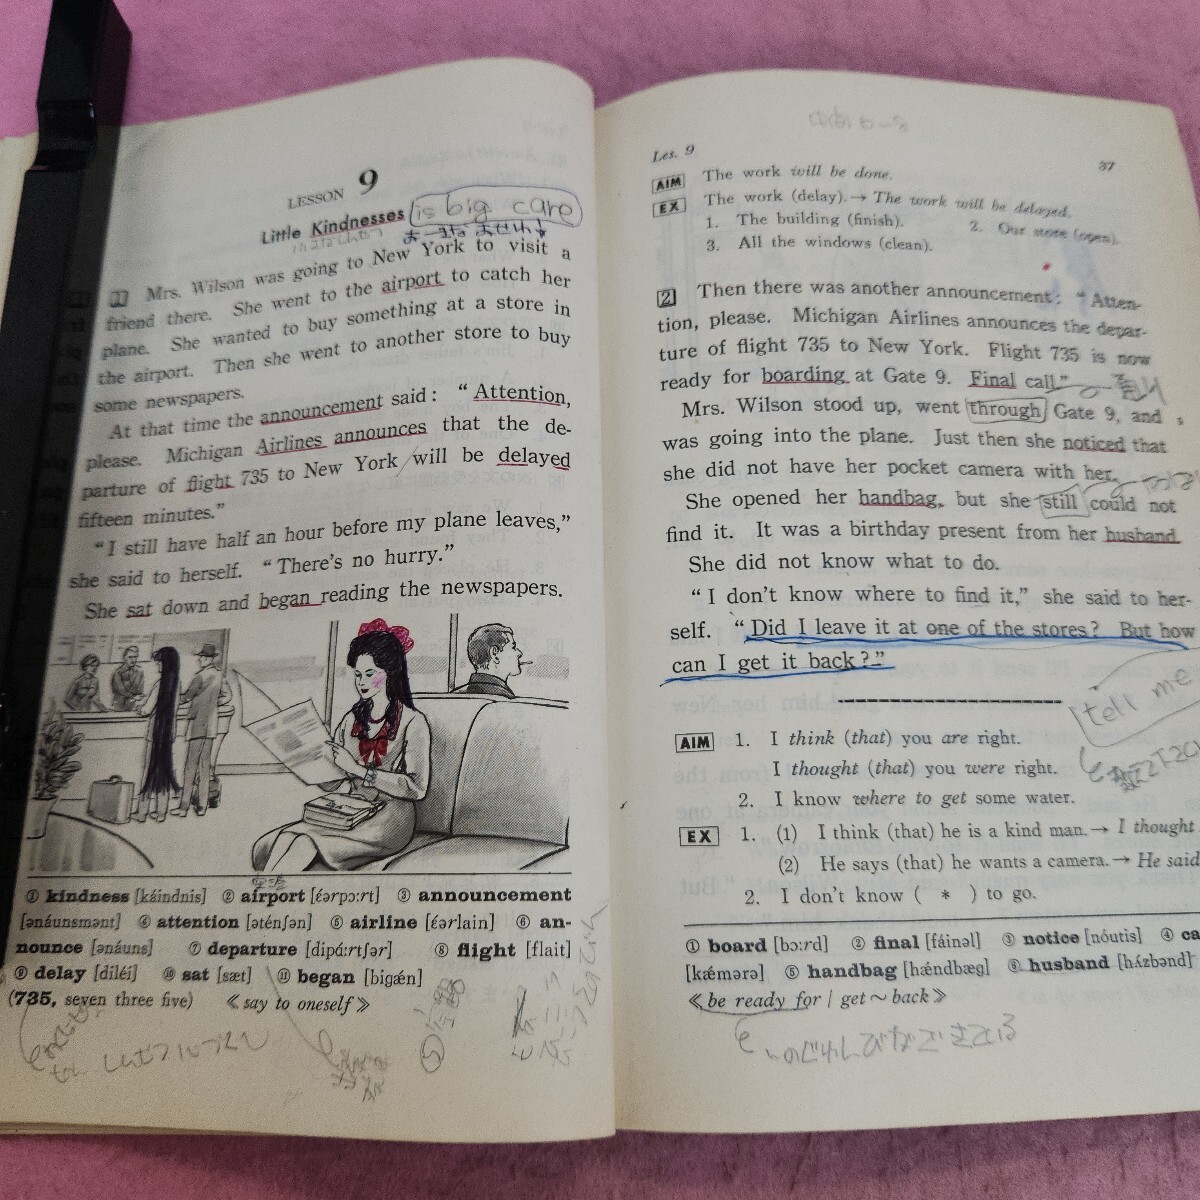 LESSON 9
Little Kindnesses is big care
1 Mrs. Wilson was going to New York to visit a
friend there. She went to the airport to catch her
plane. She wanted to buy something at a store in
the airport. Then she went to another store to buy
some newspapers.
At that time the announcement said: “Attention,
please. Michigan Airlines announces that the de-
parture of flight 735 to New York will be delayed
fifteen minutes.”
“I still have half an hour before my plane leaves,”
she said to herself. “There's no hurry.”
She sat down and began reading the newspapers.
① kindness [káindnis] ② airport [ɛ́ərpɔ:rt] ③ announcement
[ənáunsmənt] ④ attention [əténʃən] ⑤ airline [ɛ́ərlain] ⑥ an-
nounce [ənáuns] ⑦ departure [dipá:rtʃər] ⑧ flight [flait]
⑨ delay [diléi] ⑩ sat [sæt] ⑪ began [bigǽn]
(735, seven three five) 《say to oneself》
Les. 9 37
AIM The work will be done.
EX The work (delay).→ The work will be delayed.
1. The building (finish). 2. Our store (open).
3. All the windows (clean).
2 Then there was another announcement: “Atten-
tion, please. Michigan Airlines announces the depar-
ture of flight 735 to New York. Flight 735 is now
ready for boarding at Gate 9. Final call.”
Mrs. Wilson stood up, went through Gate 9, and
was going into the plane. Just then she noticed that
she did not have her pocket camera with her.
She opened her handbag, but she still could not
find it. It was a birthday present from her husband.
She did not know what to do.
“I don't know where to find it,” she said to her-
self. “Did I leave it at one of the stores? But how
can I get it back?”
tell me
AIM 1. I think (that) you are right.
I thought (that) you were right.
2. I know where to get some water.
EX 1. (1) I think (that) he is a kind man.→ I thought
(2) He says (that) he wants a camera.→ He said
2. I don't know ( * ) to go.
① board [bɔ:rd] ② final [fáinəl] ③ notice [nóutis] ④ ca
[kǽmərə] ⑤ handbag [hǽndbæg] ⑥ husband [hʌ́zbənd]
《be ready for / get～back》